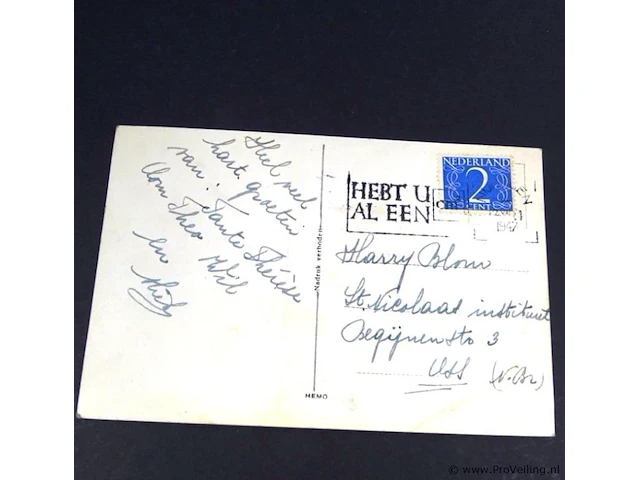 Heel veel
hart. groeten
van:
Tante Thérèse
Oom Theo Wil
en
Nadruk verboden
NEDERLAND
2
CENT
HEBT U
AL EEN
1947
Harry Blom
St. Nicolaas instituut
Begijnensto 3
Oss (N.Br)
HEMO
© www.ProVeiling.nl